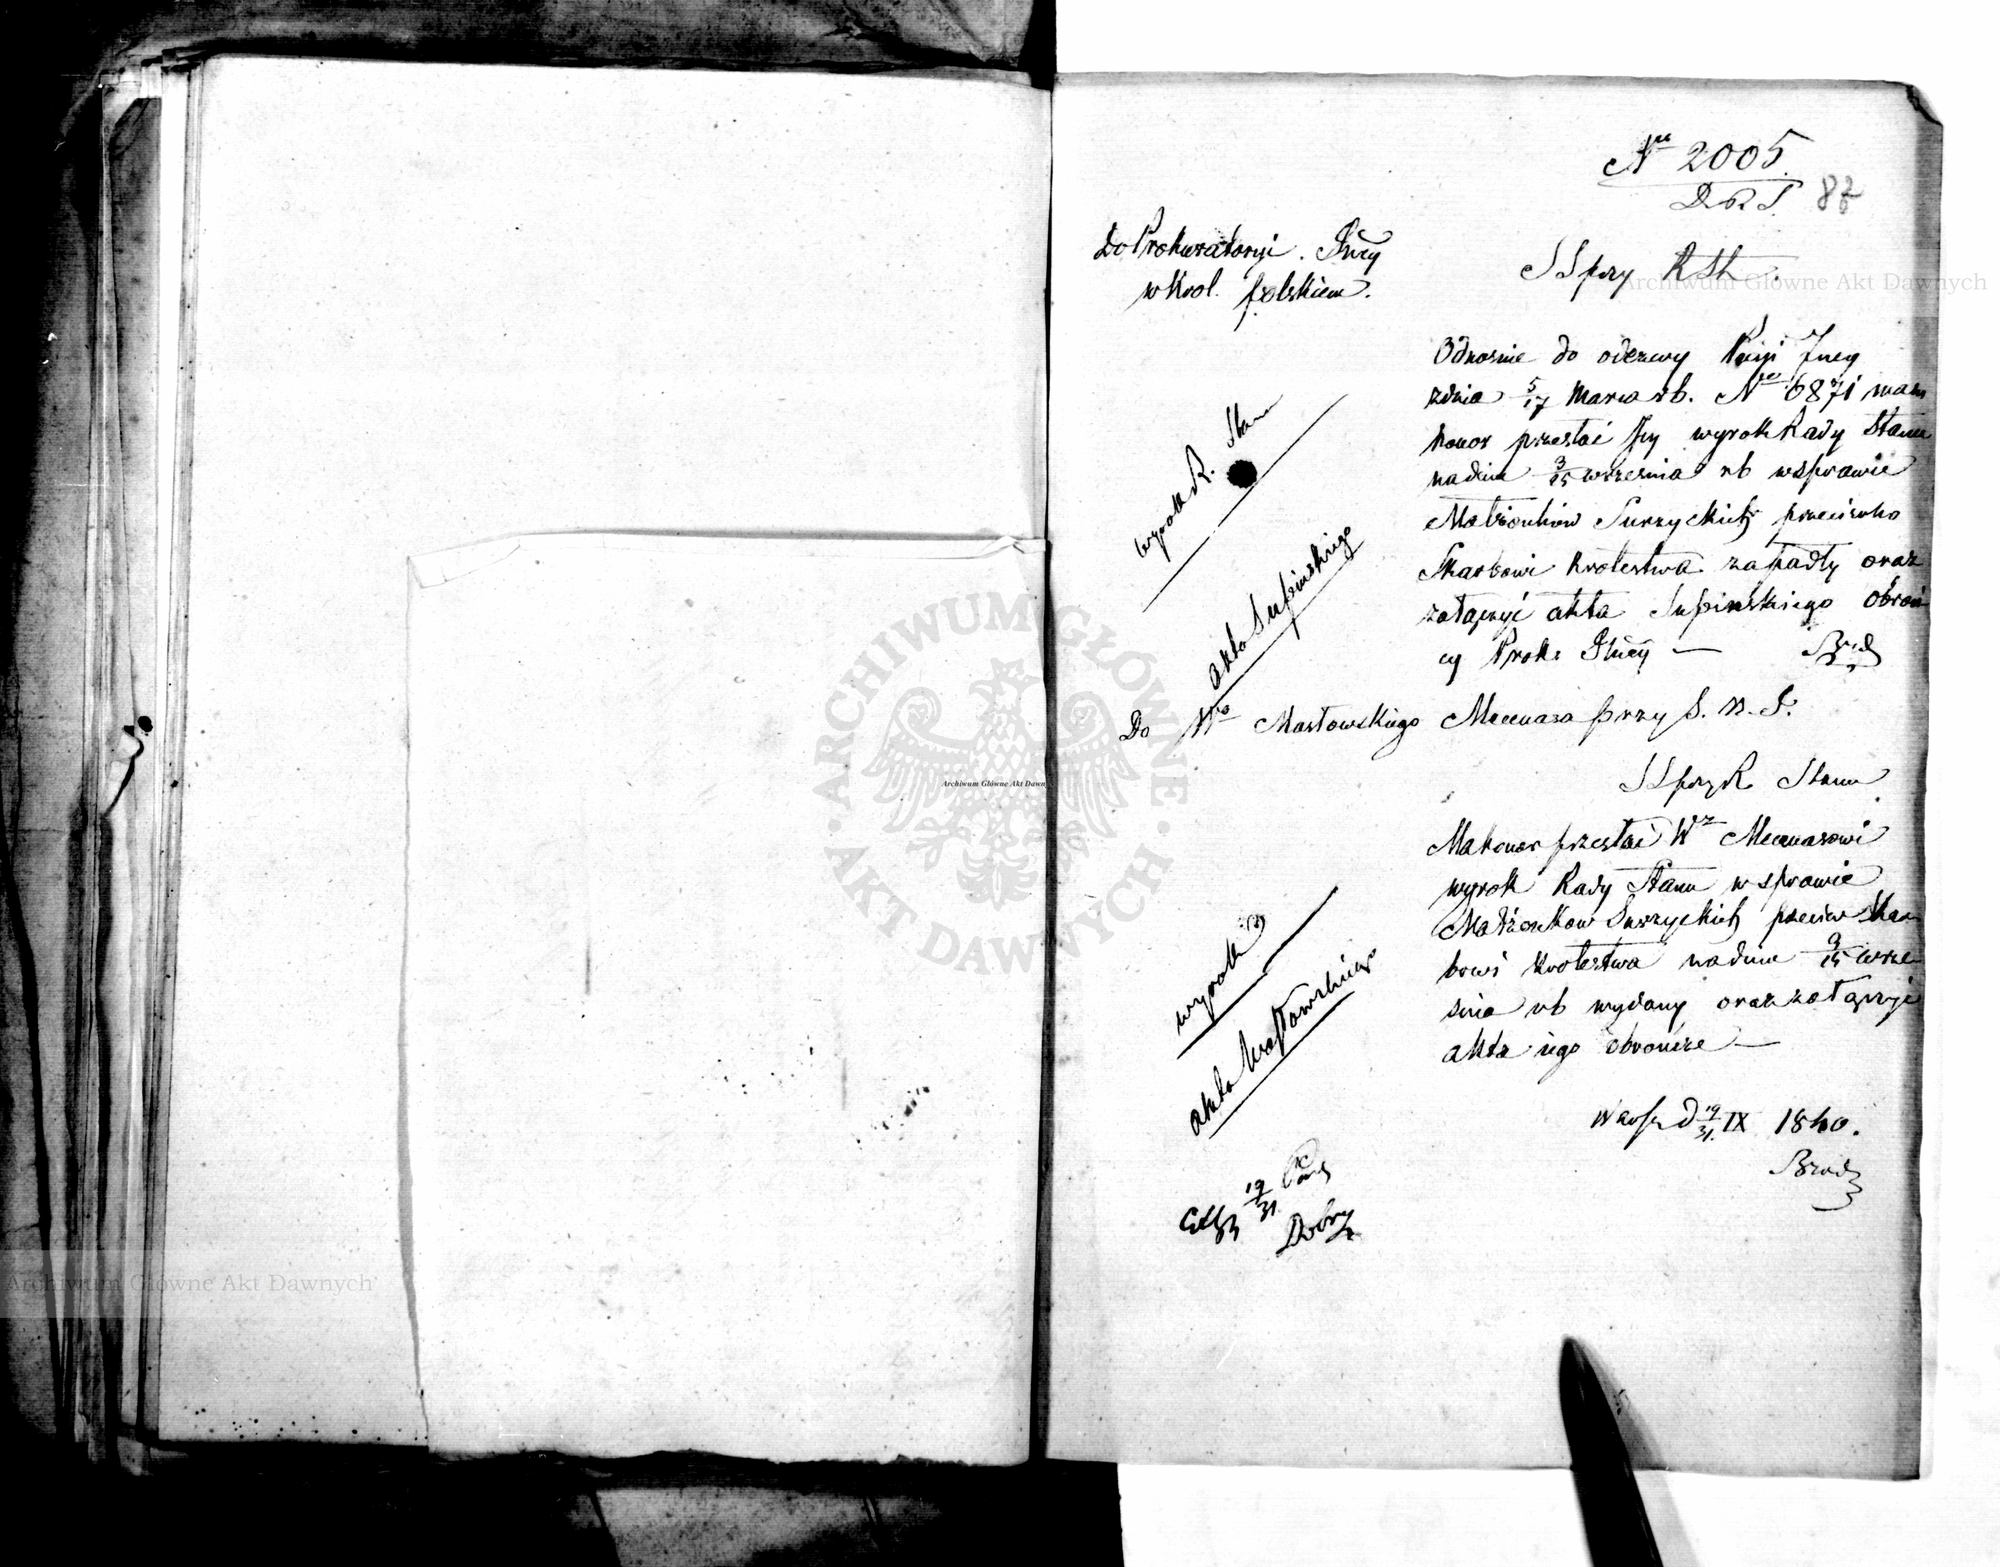 Nro 2005.
D.R.S.
82
Do Prokuratoryi. Jney
w Krol. polskiem.
SSprzy RSt.
Odnośnie do odezwy Jney
z dnia 5/17 Marca rb. Nro 6871 mam
honor przesłać Jey wyrok Rady Stanu
na dniu 3/15 września rb w sprawie
Małżonków Surzyckich przeciwko
Skarbowi Krolestwa zapadły oraz
załączyć akta Łupińskiego Obroń
cy Prok:
wyrok R. Stanu
akta Łupińskiego
Do Wo Masłowskiego Mecenasa przy
SSprzy R Stanu
Ma honor przesłać W Mecenasowi
wyrok Rady Stanu w sprawie
Małżonkow Surzyckich przeciw Skar
bowi Krolestwa na dniu 3/15 wrze
śnia rb wydany oraz załączyć
akta iego obrończe
wyrok
akta Masłowskiego
Warsz d 19/31 IX 1840.
19/31
Archiwum Główne Akt Dawnych
Archiwum Główne Akt Dawnych
Archiwum Główne Akt Dawn
ARCHIWUM GŁÓWNE
AKT DAWNYCH